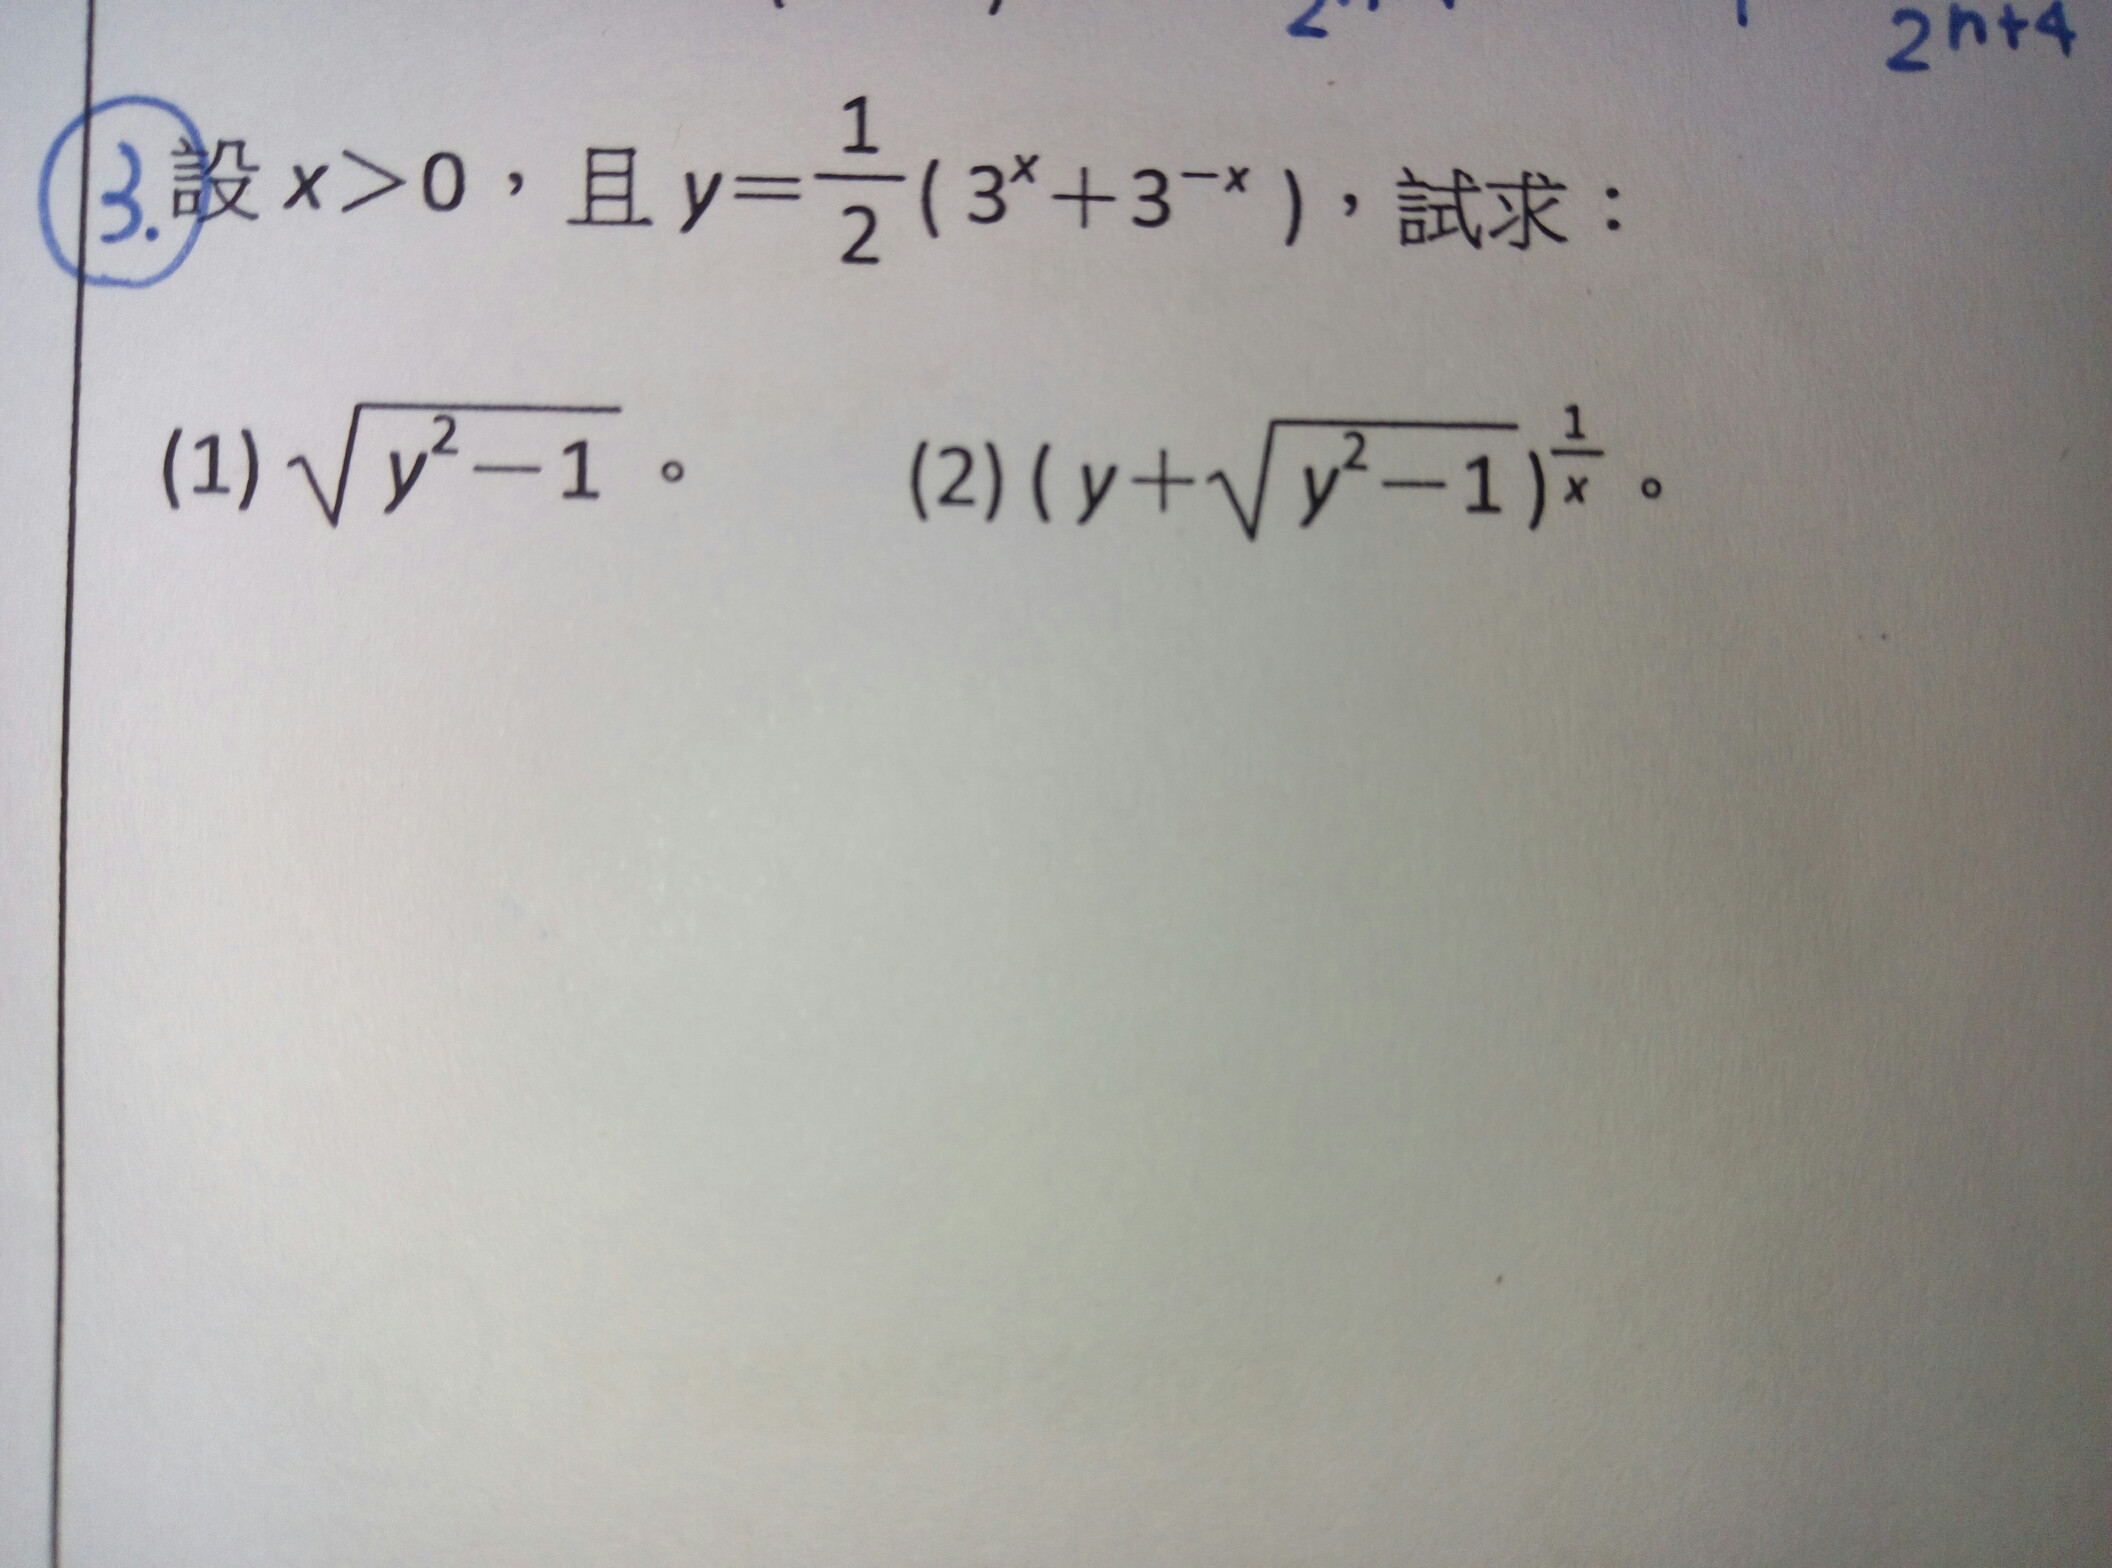 2n+4
3.設 x>0，且 y=1/2(3^x+3^−x)，試求：
(1)√(y²−1)。 (2)(y+√(y²−1))^(1/x)。